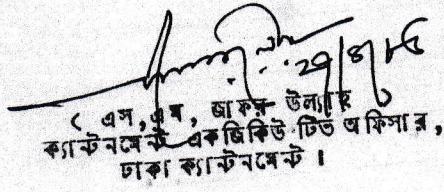 ( এস, এম, জাফর উল্যাহ
ক্যান্টনমেন্ট একজিকিউটিভ অফিসার,
ঢাকা ক্যান্টনমেন্ট।